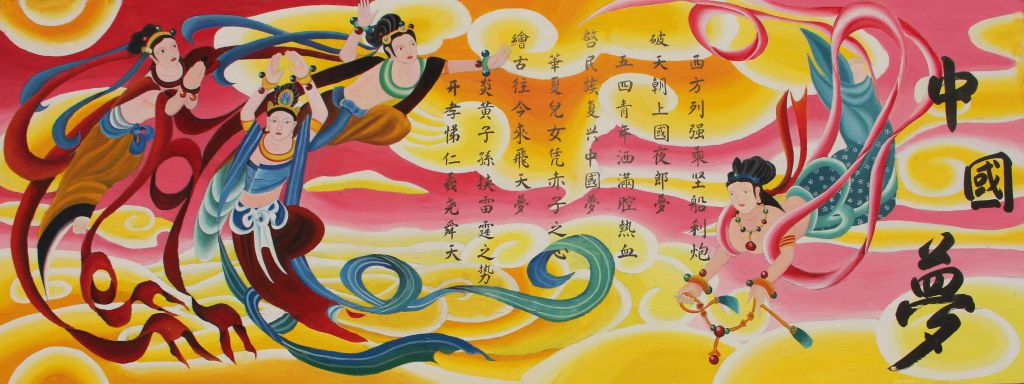 中國夢
西方列强乘坚船利炮
破天朝上國夜郎夢
五四青年洒滿腔熱血
啓民族复兴中國夢
華夏兒女凭赤子之心
繪古往今來飛天夢
炎黄子孫挟雷霆之势
开孝悌仁義尧舜天